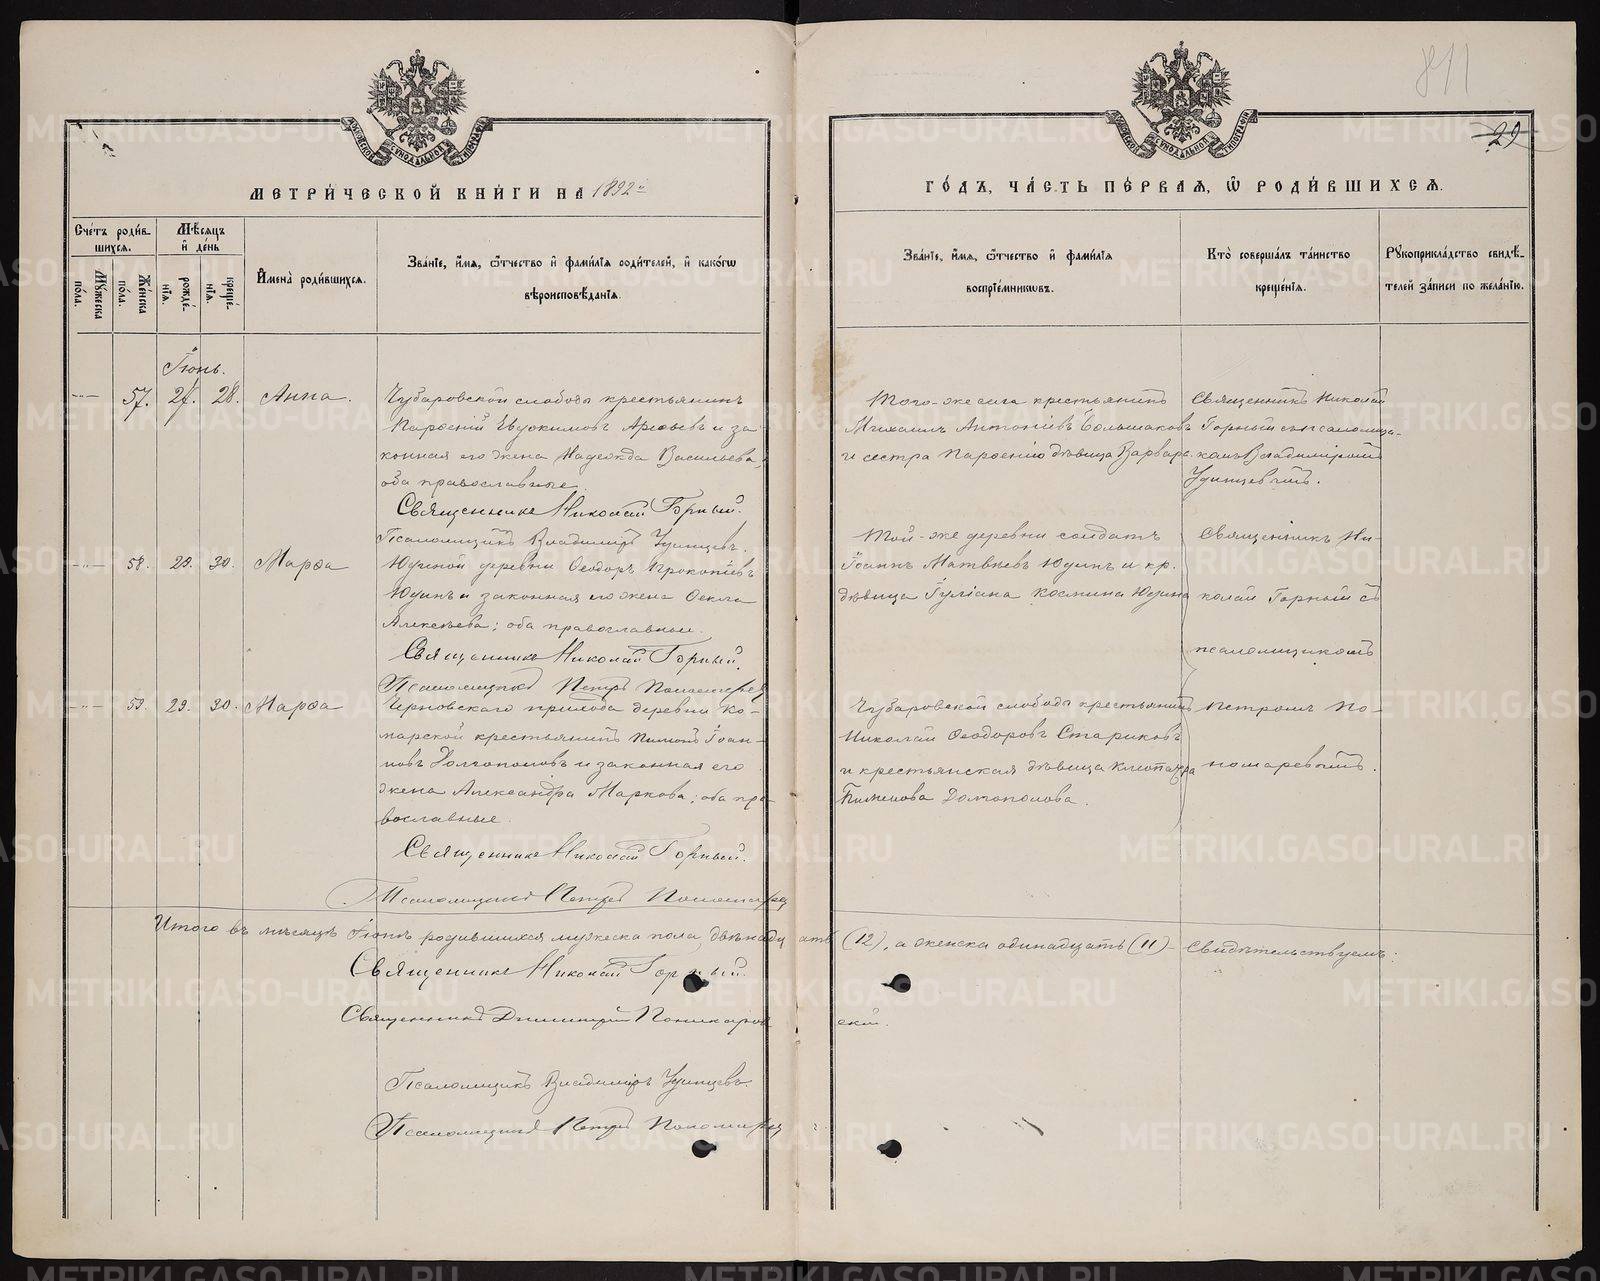 811
29
МЕТРИ́ЧЕСКОЙ КНИ́ГИ НА 1892й
ГО́ДЪ, ЧА́СТЬ ПЕ́РВАЯ, Ѿ РОДИ́ВШИХСЯ.
Сче́тъ роди́в-
шихся.
Му́жеска
по́ла.
Же́нска
по́ла.
Мѣ́сяцъ
и҆ де́нь
рожде́-
нїя.
креще́-
нїя.
И҆мена̀ роди́вшихся.
Зва́нїе, и҆́мя, ѻ҆́тчество и҆ фами́лїя роди́телей, и҆ како́гѡ
вѣроисповѣ́данїя.
Зва́нїе, и҆́мя, ѻ҆́тчество и҆ фами́лїя
воспрїе́мникѡвъ.
Кто̀ соверша́лъ та́инство
креще́нїя.
Рꙋкоприкла́дство свидѣ́-
телей за́писи по жела́нїю.
Іюнь.
57. 27. 28. Анна.
Чубаровской слободы крестьянинъ
Парѳеній Евдокимовъ Арефьевъ и за-
конная его жена Надежда Васильева,
оба православные.
Священникъ Николай Горный.
Псаломщикъ Владимиръ Удинцевъ.
Того-же села крестьянинъ
Михаилъ Антоніевъ Большаковъ
и сестра Парѳенію дѣвица Варвара.
Священникъ Николай
Горный съ псаломщи-
комъ Владимиромъ
Удинцевымъ.
58. 29. 30. Марѳа
Юдиной деревни Ѳеодоръ Прокопіевъ
Юдинъ и законная его жена Ѳекла
Алексѣева; оба православные.
Священникъ Николай Горный.
Псаломщикъ Петръ Пономаревъ
Той-же деревни солдатъ
Іоаннъ Матвѣевъ Юдинъ и кр.
дѣвица Іуліана Космина Юдина
Священникъ Ни-
колай Горный съ
псаломщикомъ
Петромъ По-
номаревымъ.
59. 29. 30. Марѳа
Черновскаго прихода деревни Ко-
марской крестьянинъ Пименъ Іоан-
новъ Долгополовъ и законная его
жена Александра Маркова; оба пра-
вославные.
Священникъ Николай Горный.
Псаломщикъ Петръ Пономаревъ
Чубаровской слободы крестьянинъ
Николай Ѳеодоровъ Стариковъ
и крестьянская дѣвица Клеопатра
Пименова Долгополова.
Итого въ мѣсяцѣ Іюнѣ родившихся мужеска пола двѣнадцать (12), а женска одинадцать (11) - Свидѣтельствуемъ:
Священникъ Николай Горный.
Священникъ Димитрій Поникаровский.
Псаломщикъ Владимиръ Удинцевъ.
Псаломщикъ Петръ Пономаревъ
METRIKI.GASO-URAL.RU